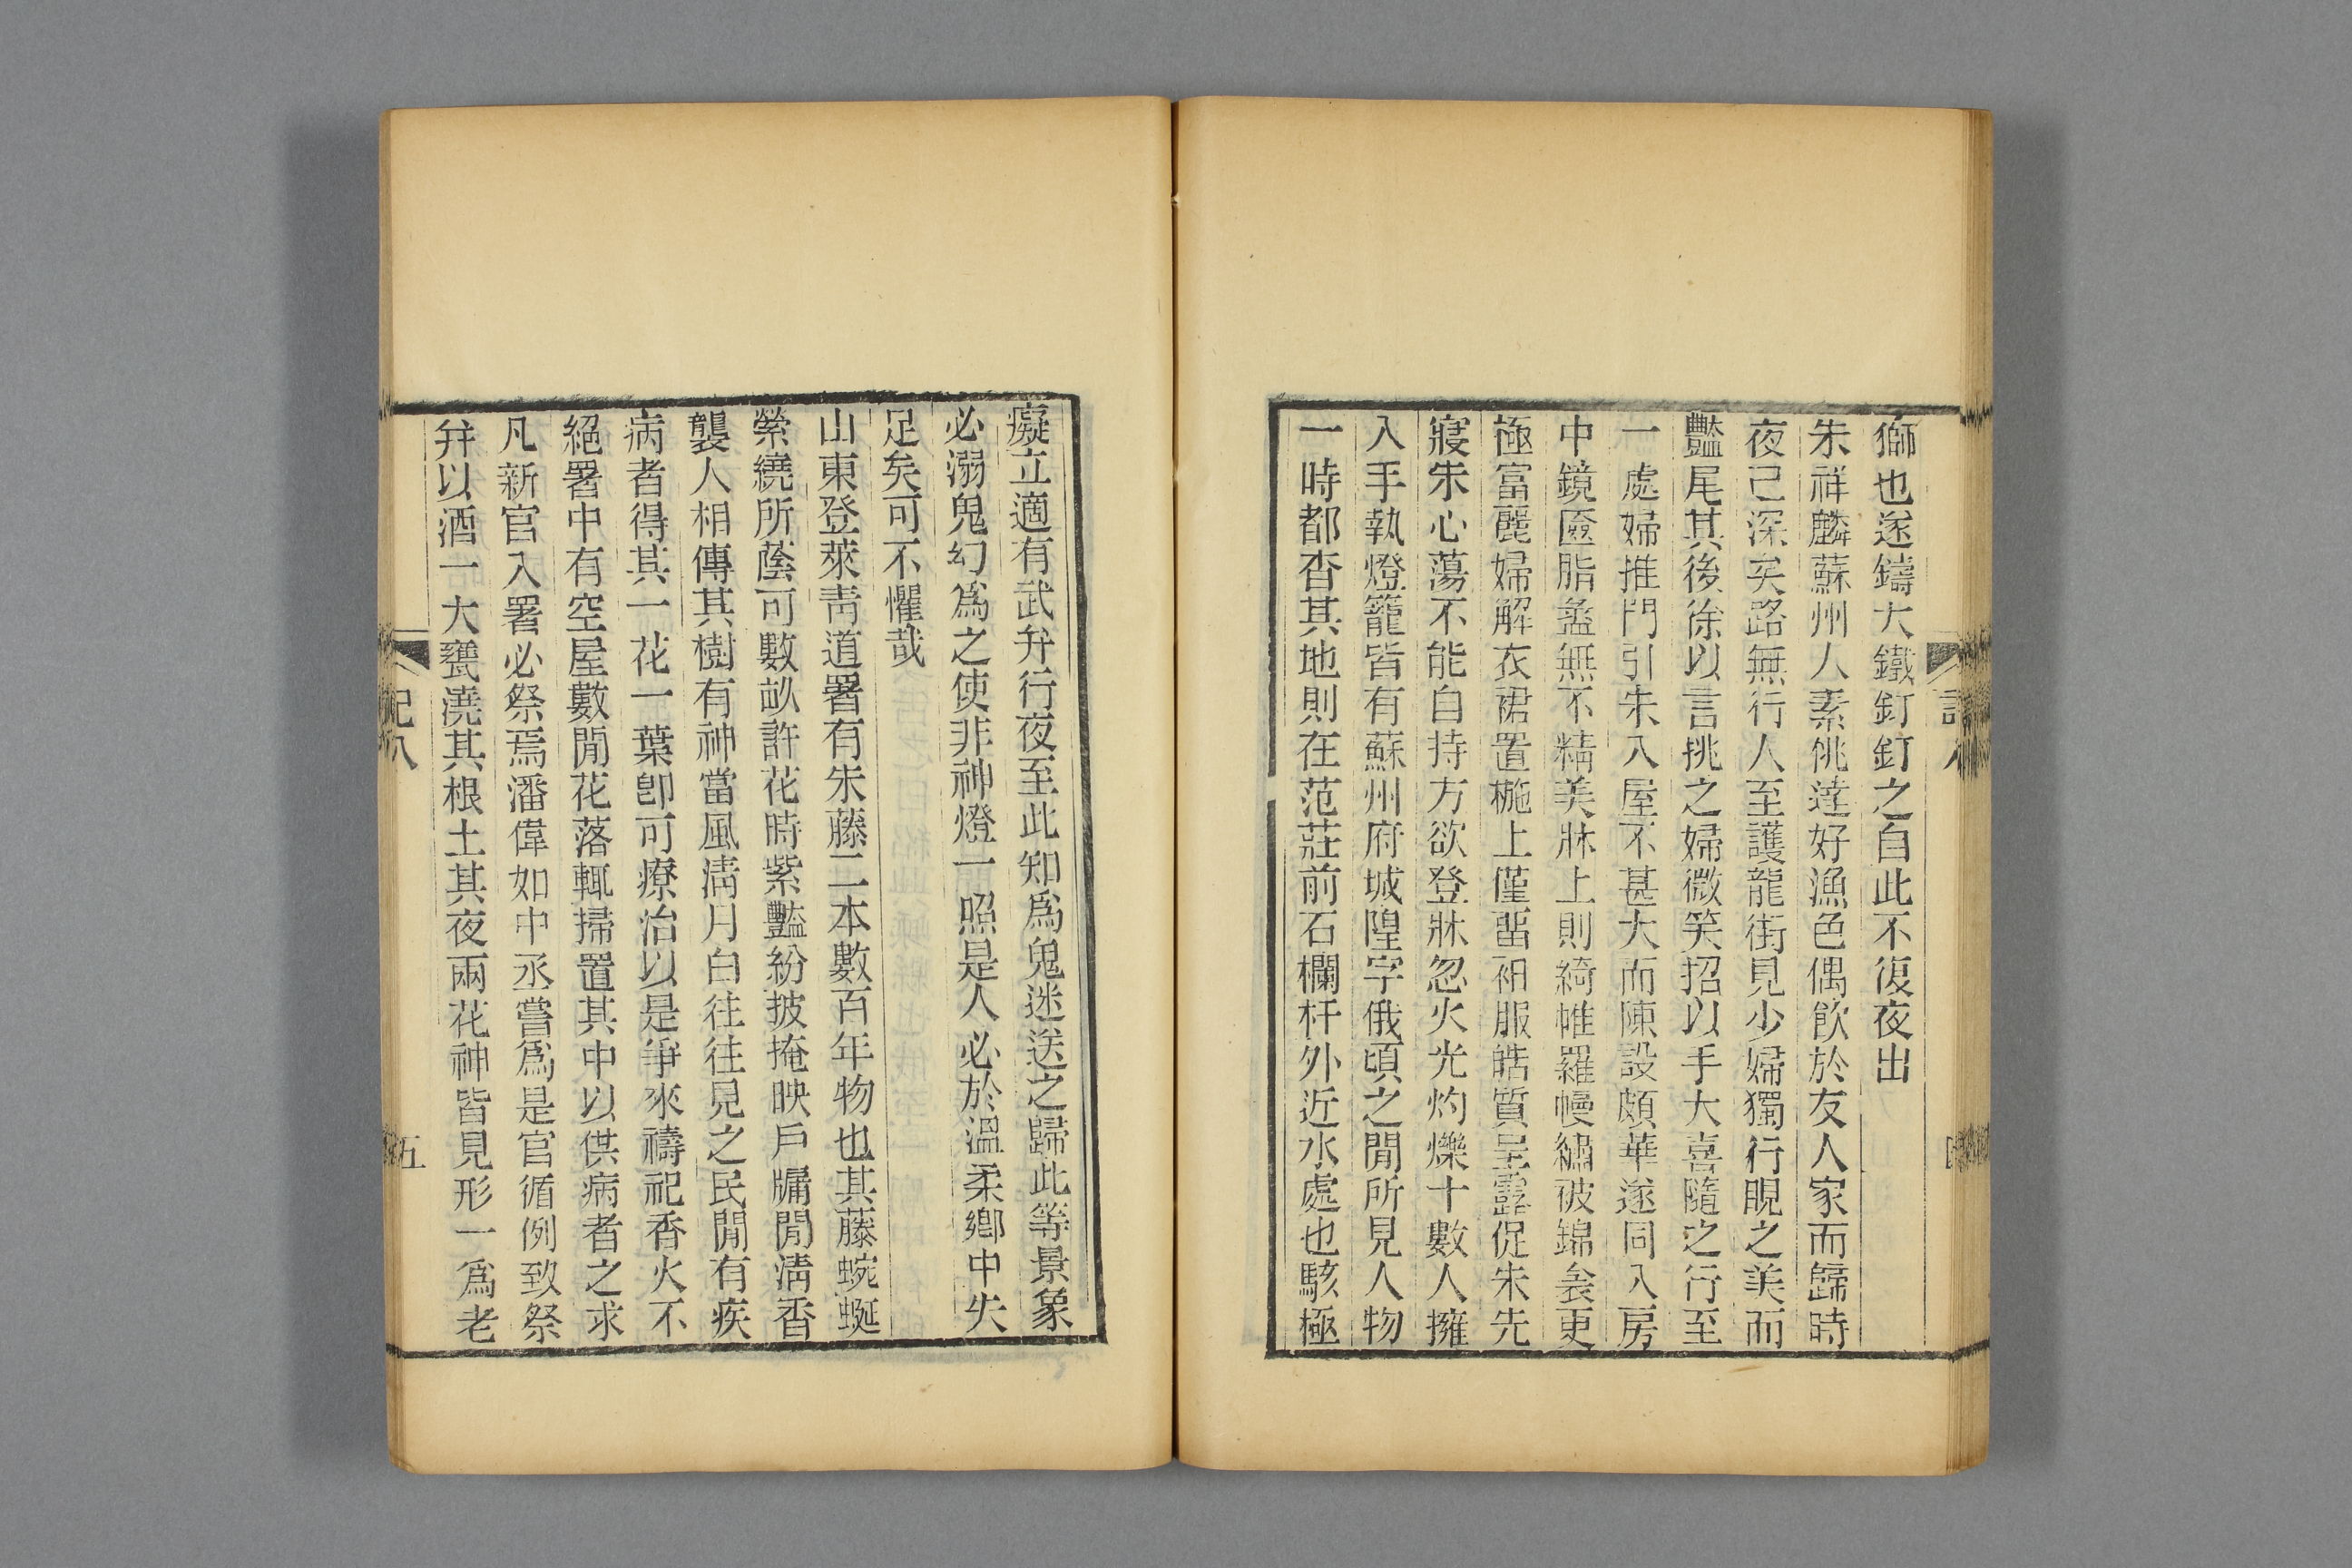 獅也遂鑄大鐵釘釘之自此不復夜出
朱祥麟蘇州人素佻達好漁色偶飮於友人家而歸時
夜已深矣路無行人至護龍街見少婦獨行覘之美而
豔尾其後徐以言挑之婦微笑招以手大喜隨之行至
一處婦推門引朱入屋不甚大而陳設頗華遂同入房
中鏡匳脂盝無不精美牀上則綺帷羅幔繡被錦衾更
極富麗婦解衣裙置椸上僅畱衵服皓質呈露促朱先
寢朱心蕩不能自持方欲登牀忽火光灼爍十數人擁
入手執燈籠皆有蘇州府城隍字俄頃之閒所見人物
一時都杳其地則在范莊前石欄杆外近水處也駭極
癡立適有武弁行夜至此知爲鬼迷送之歸此等景象
必溺鬼幻爲之使非神燈一照是人必於溫柔鄉中失
足矣可不懼哉
山東登萊靑道署有朱藤二本數百年物也其藤蜿蜒
縈繞所蔭可數畝許花時紫豔紛披掩映戶牖閒淸香
襲人相傳其樹有神當風淸月白往往見之民閒有疾
病者得其一花一葉卽可療治以是爭來禱祀香火不
絕署中有空屋數閒花落輒掃置其中以供病者之求
凡新官入署必祭焉潘偉如中丞嘗爲是官循例致祭
幷以酒一大甕澆其根土其夜兩花神皆見形一爲老
記八
五